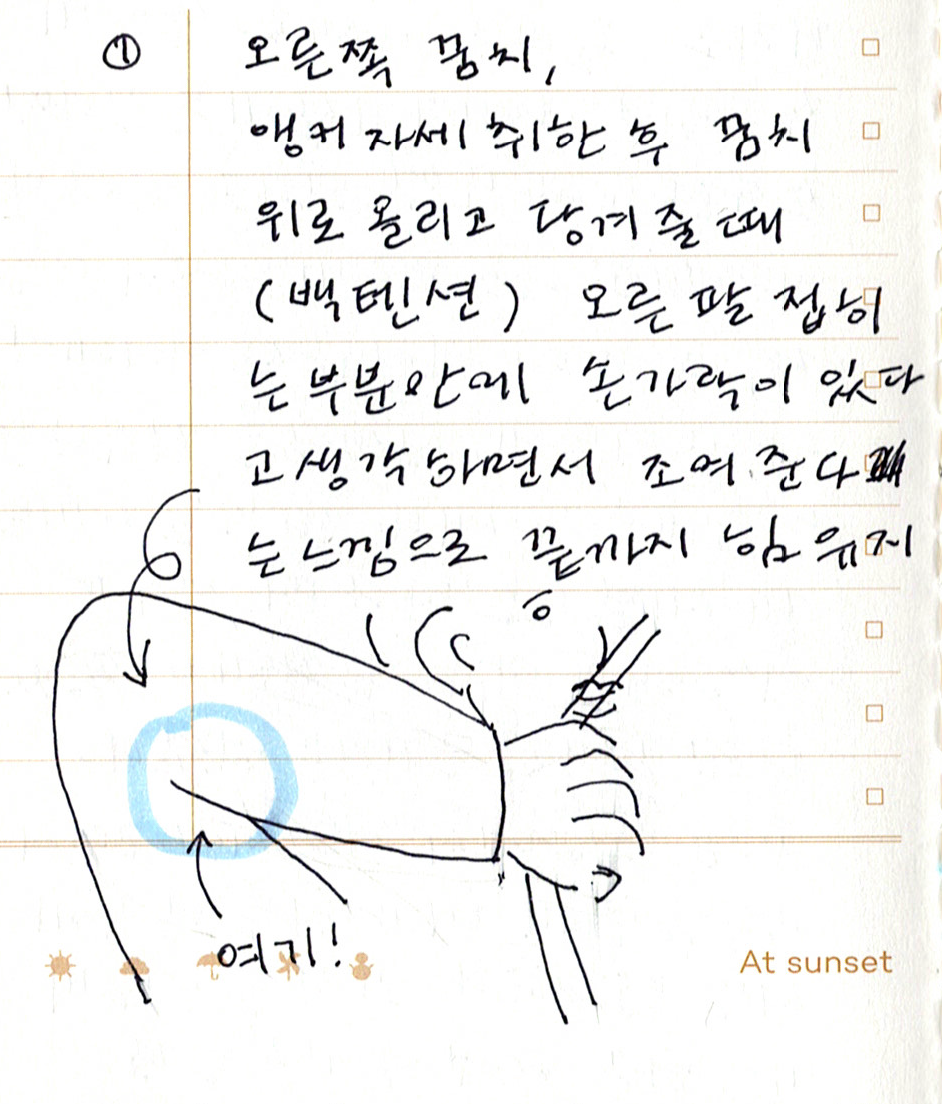 ① 오른쪽 꿈치,
앵커 자세 취한 후 꿈치
위로 올리고 당겨 줄 때
(백텐션) 오른팔 접히
는 부분 안에 손가락이 있다
고 생각하면서 조여 준다
는 느낌으로 끝까지 힘 유지
여기!
At sunset